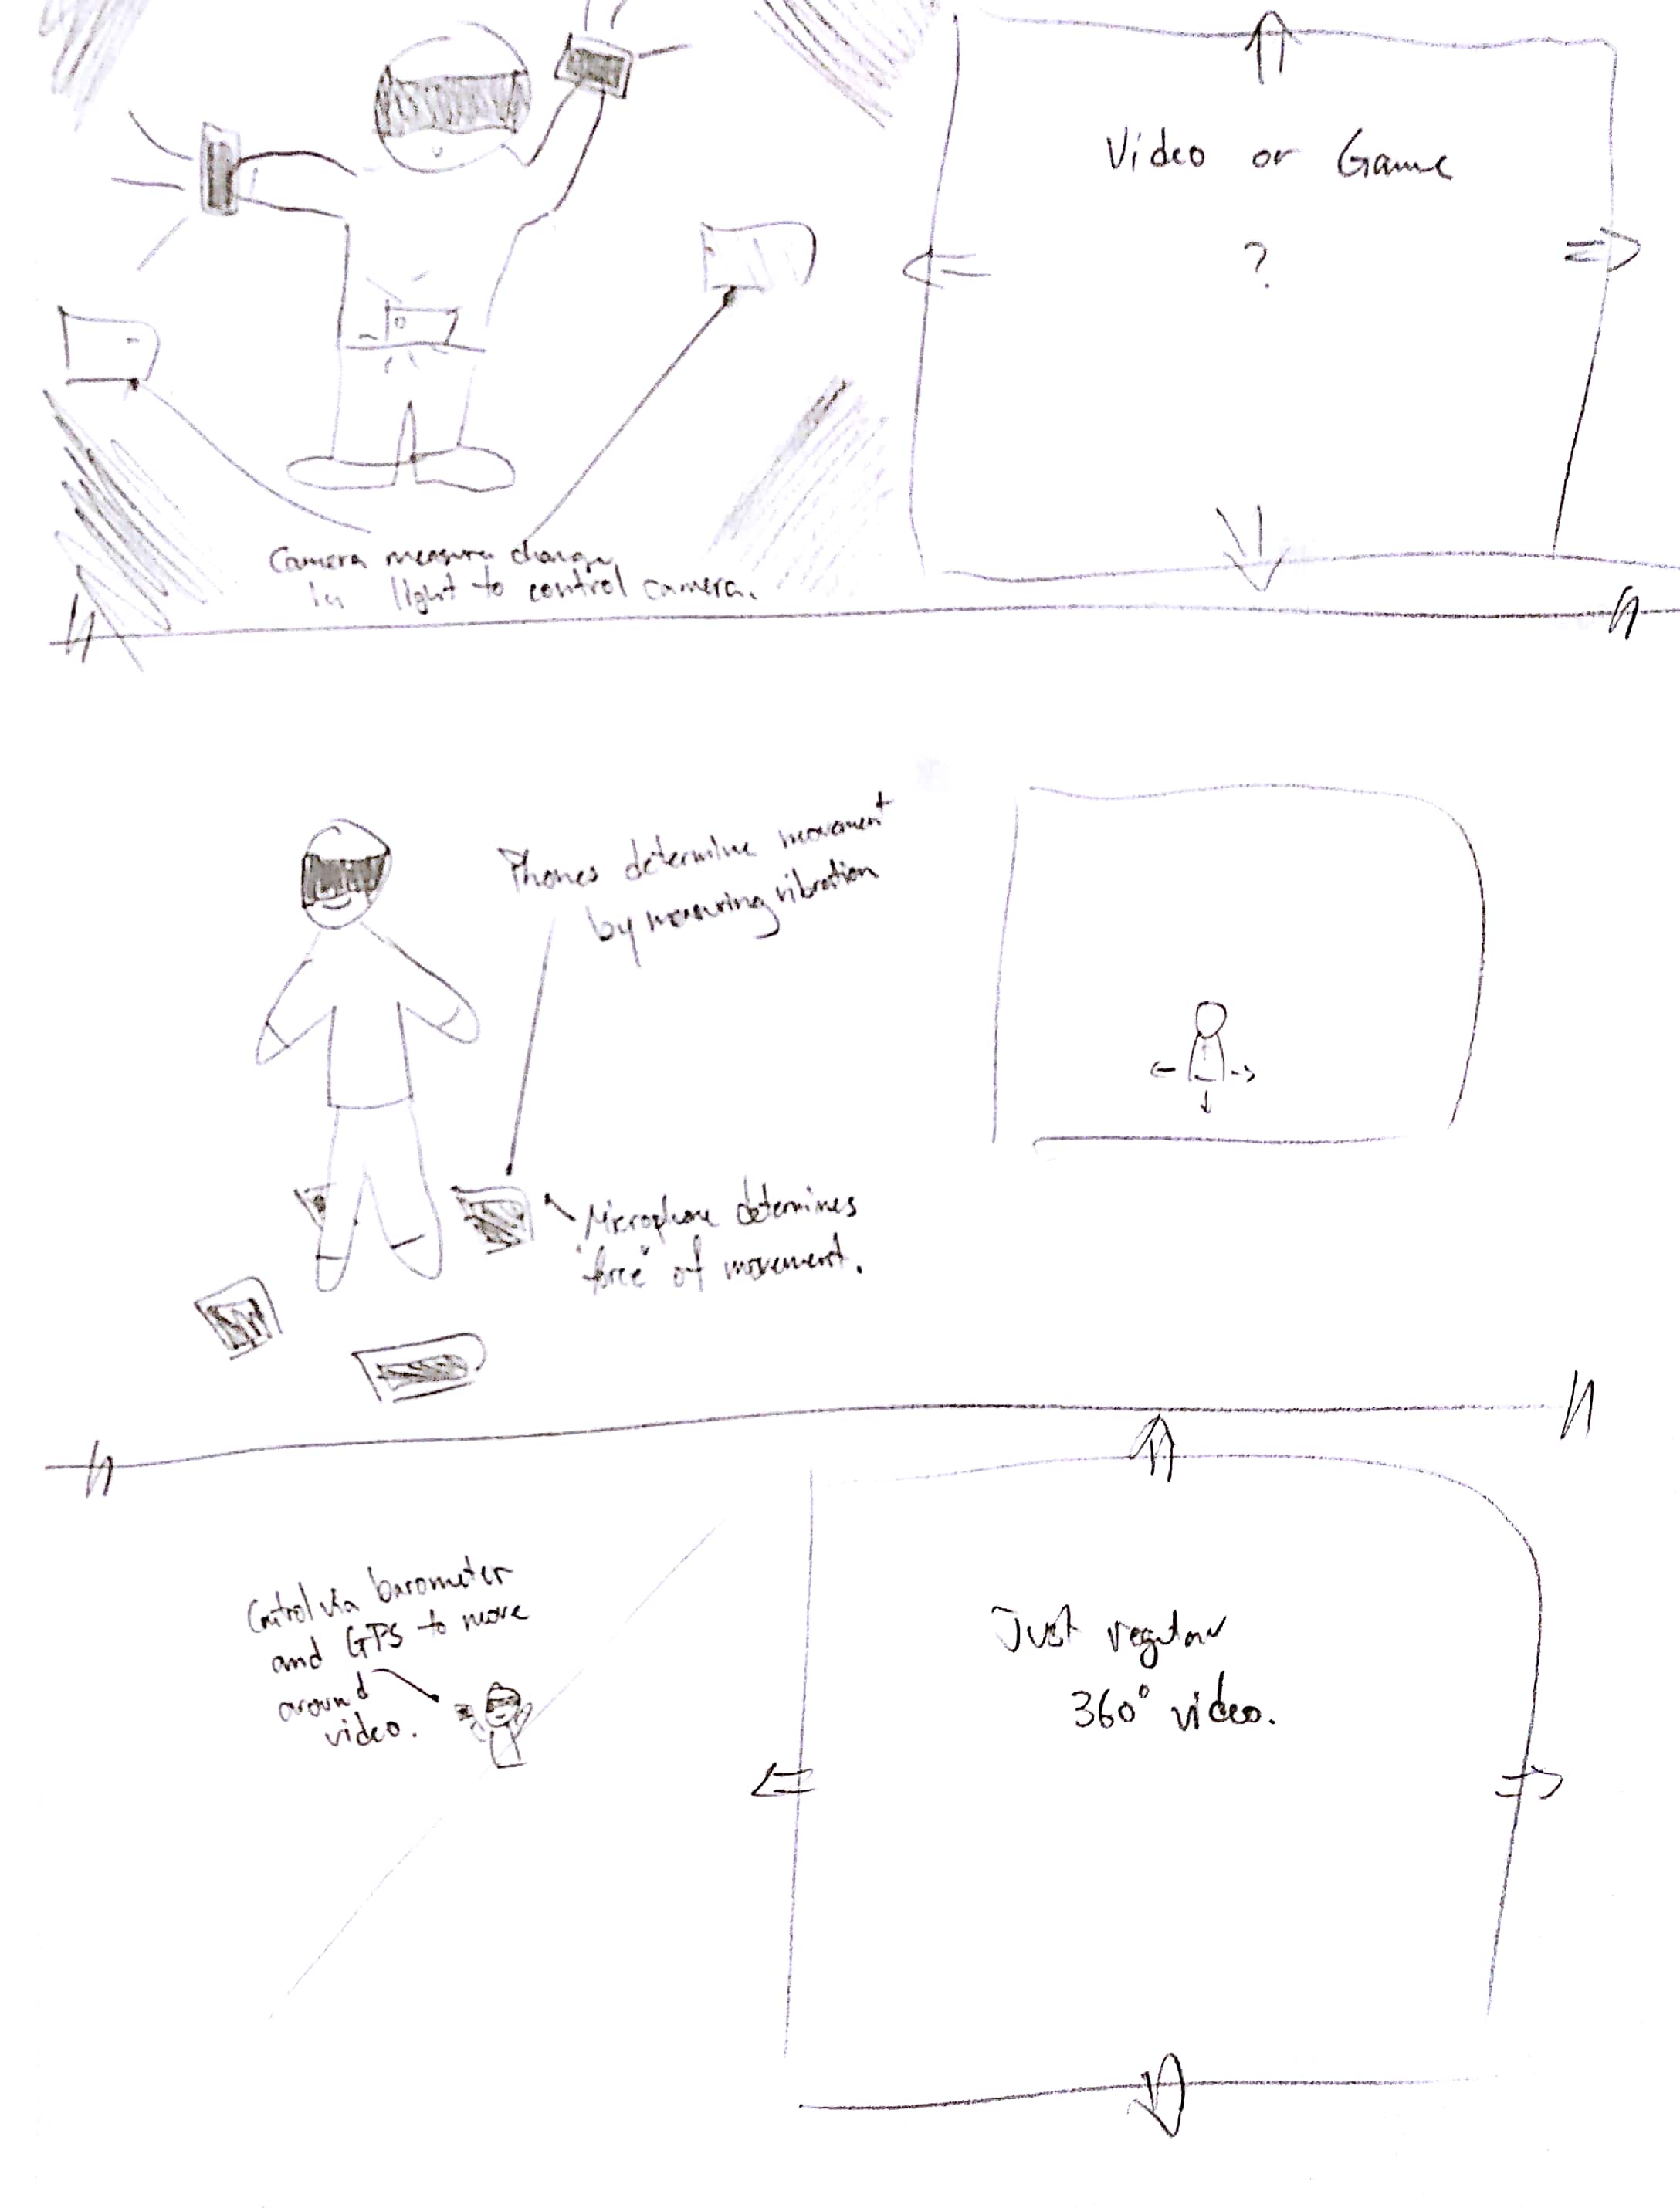 Video or Game
?
Camera measure change
in light to control camera.
Phones determine movement
by measuring vibration
Microphone determines
"force" of movement.
Control via barometer
and GPS to move
around
video.
Just regular
360° video.